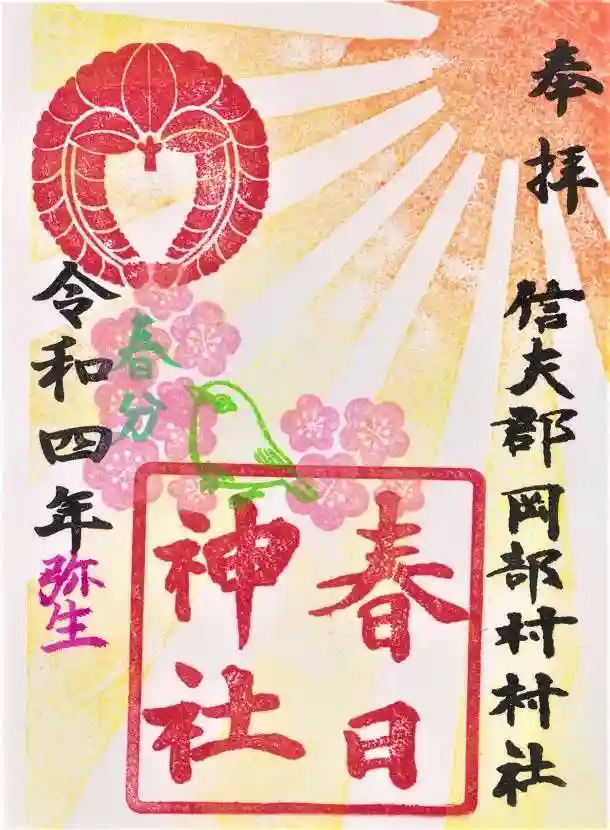 奉拝
信夫郡岡部村村社
春日
神社
春分
令和四年弥生